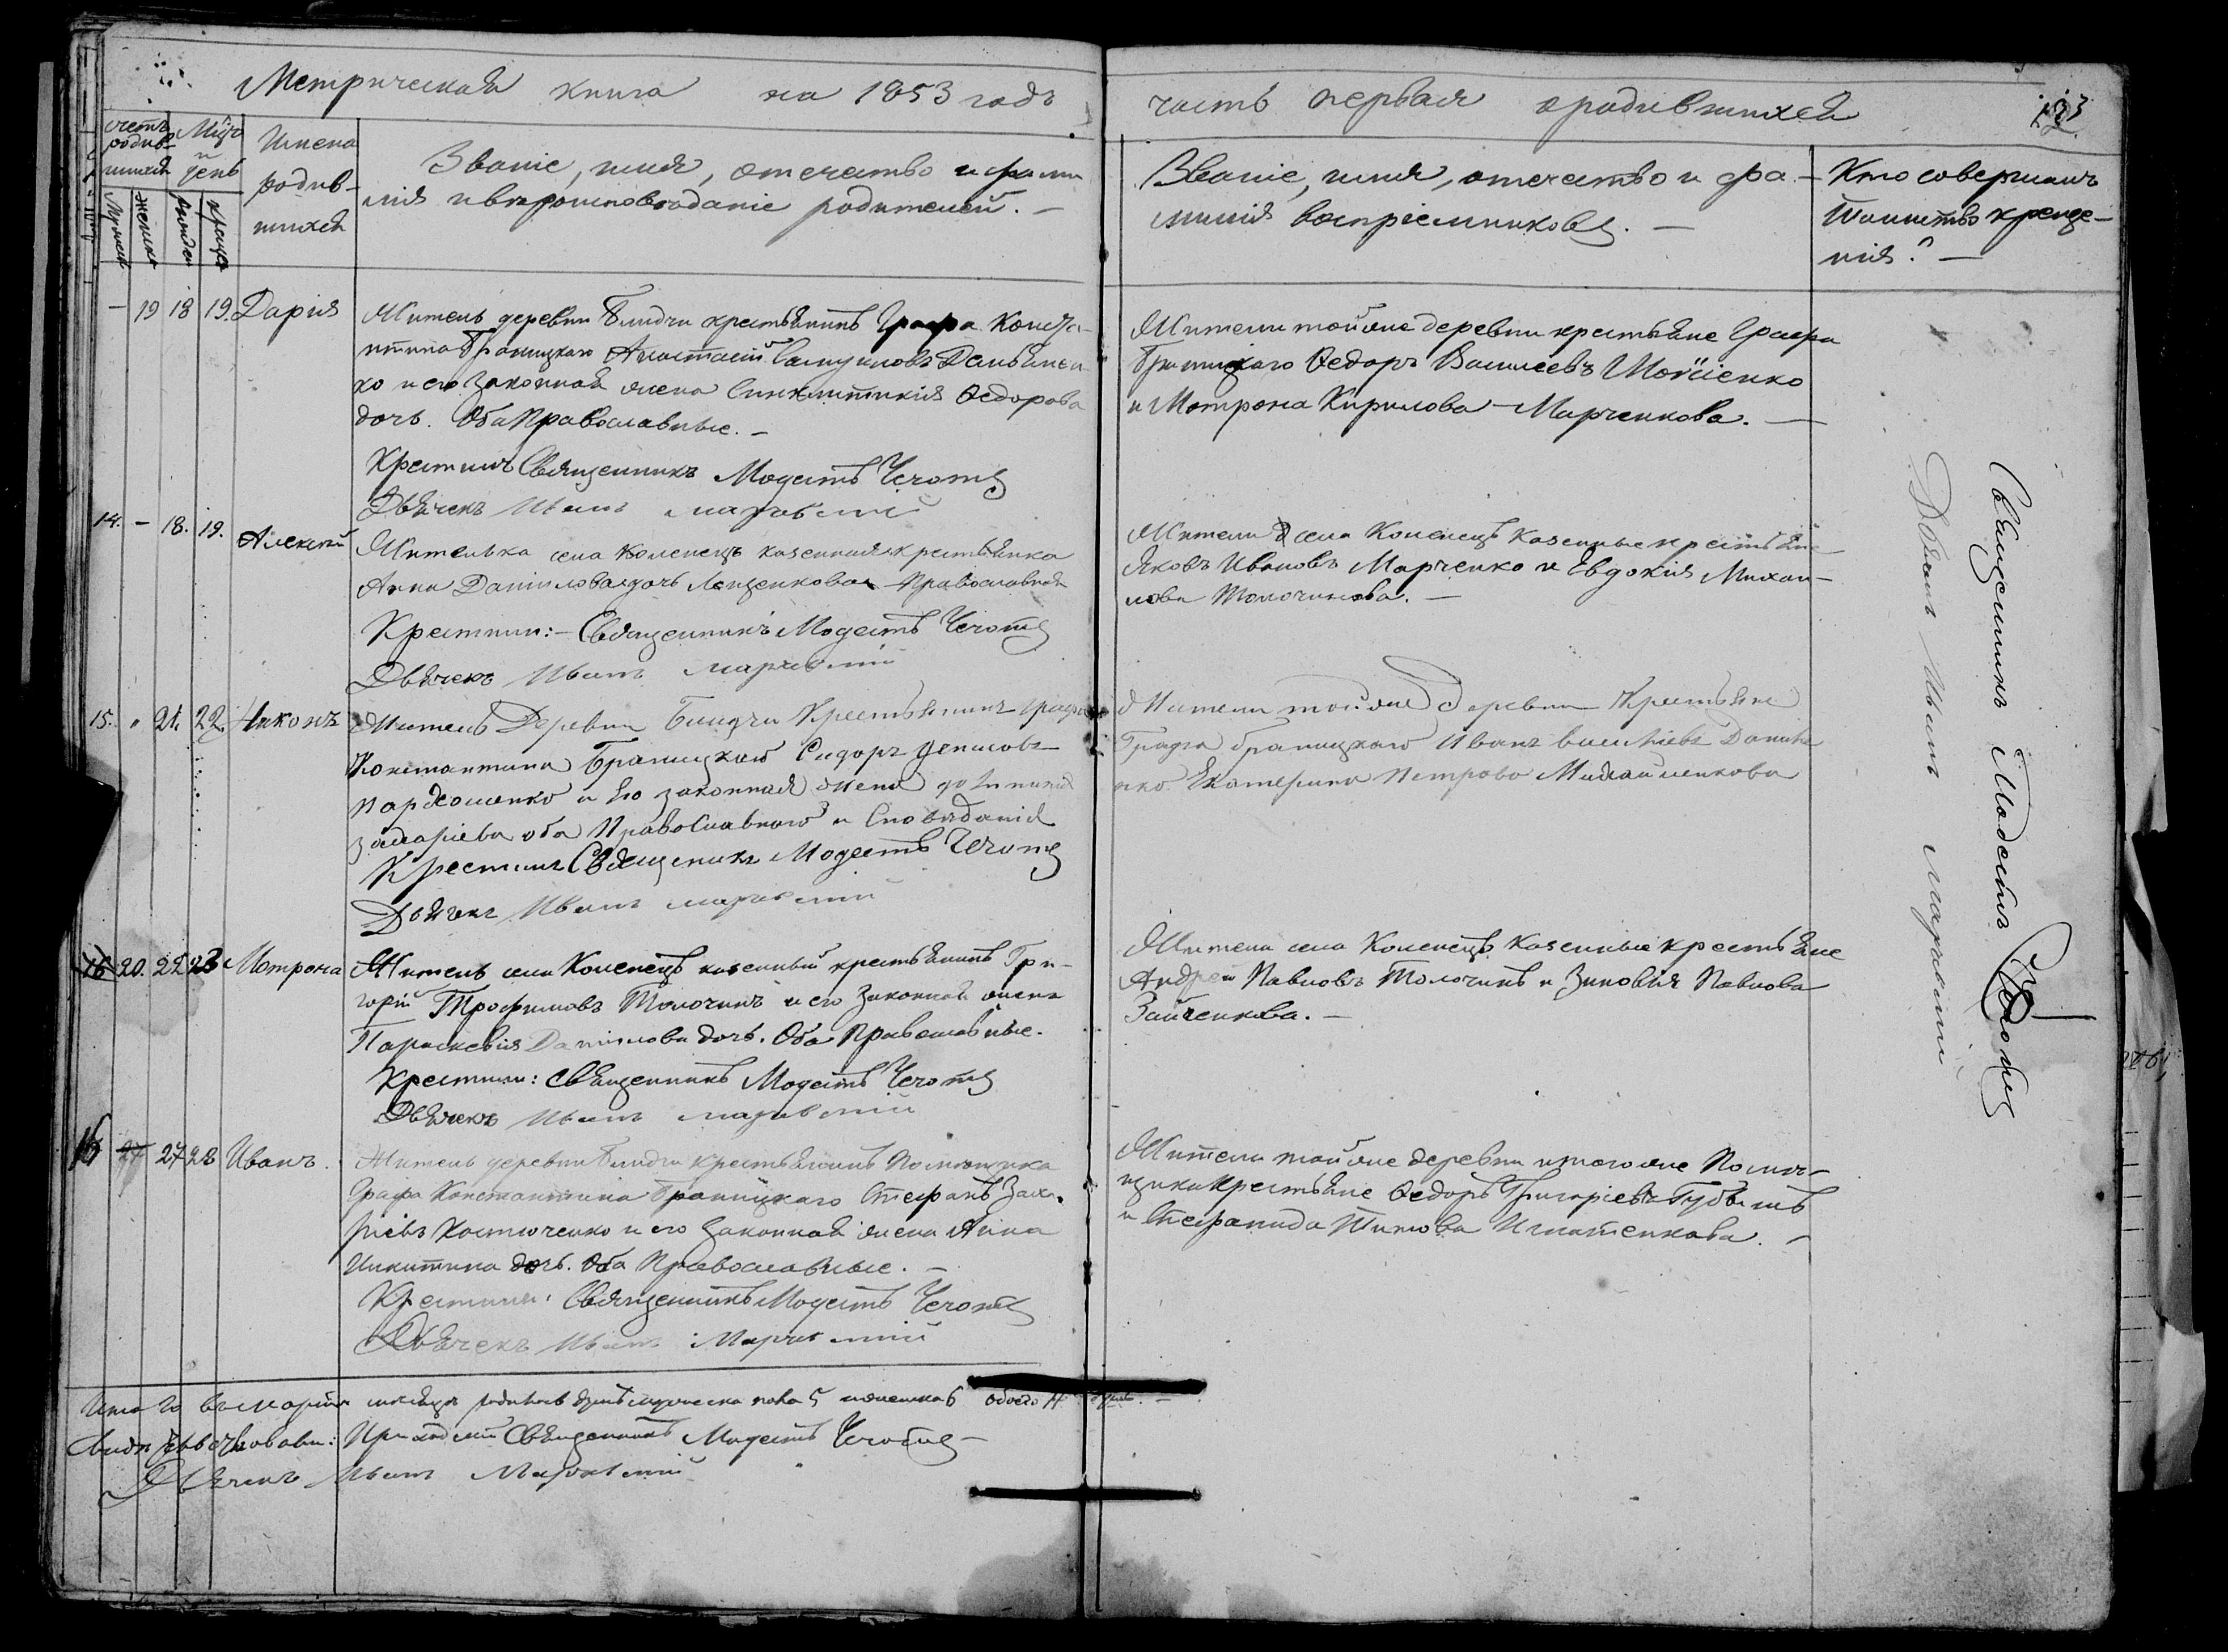 Метрическая книга на 1853 годъ
часть первая о родившихся
счетъ родив-шихся
Мѣсяцъ и день
Имена родив-шихся
Званіе, имя, отечество и фами-
лія и вѣроисповѣданіе родителей. —
Званіе, имя, отечество и фа-
милія воспріемниковъ. —
Кто совершалъ
таинство креще-
нія? —
— 19 18 19. Дарія
Житель деревни Блидчи крестьянинъ Графа Конста-
нтина Браницкаго Анастасій
ко и его законная жена Синклитикія Ѳедорова
дочь. Оба Православные. —
Крестилъ Священникъ Модестъ
Дьячекъ Иванъ
Жители той же деревни крестьяне Графа
Браницкаго Ѳедоръ Василевъ Моисіенко
и Мотрона Кирилова Марченкова. —
14. — 18. 19. Алексій
Жителька села Коленецъ казенная крестьянка
Анна Даніилова дочь Лещенкова Православная
Крестили: — Священникъ Модестъ
Дьячекъ Иванъ
Жители села Коленецъ казенные крестьяне
Яковъ Ивановъ Марченко и Евдокія Михаи-
лова Толочинова. —
15. " 21. 22. Никонъ
Житель Деревни Блидчи Крестьянинъ графа
Константина Браницкаго Сидоръ Денисовъ
Пархоменко и Его законная жена
Захаріева оба Православнаго и Сповѣданія
Крестилъ Священикъ Модестъ
Дьячекъ Иванъ
Жители той же Деревни Крестьяне
Графа браницкаго Иванъ
Екатерина Петрова
16 20. 22 23 Мотрона
Житель села Коленецъ казенный крестьянинъ Гри-
горій Трофимовъ Толочинъ и его законная жена
Параскевія Даніилова дочь. Оба Православные.
Крестили: Священникъ Модестъ
Дьячекъ Иванъ
Жители села Коленецъ казенные крестьяне
Андрей Павловъ Толочинъ и Зиновія Павлова
Зайченкова. —
16 27 27 28 Иванъ.
Житель деревни Блидчи крестьянинъ Помѣщика
Графа Константина Браницкаго Стефанъ Заха-
ріевъ Костюченко и его законная жена Анна
Никитина дочь. Оба Православные. —
Крестили: Священникъ Модестъ
Дьячекъ Иванъ
Жители той же деревни и того же Помѣ-
щика Крестьяне Ѳедоръ Григоріевъ
и Стефанида Титова Игнатенкова. —
Священникъ Модестъ
Дьячекъ Иванъ
Итого въ мартѣ мѣсяцѣ родилось душъ мужеска пола 5 и женска 6 обоего 11
Приходскій Священникъ Модестъ
Дьячекъ Иванъ